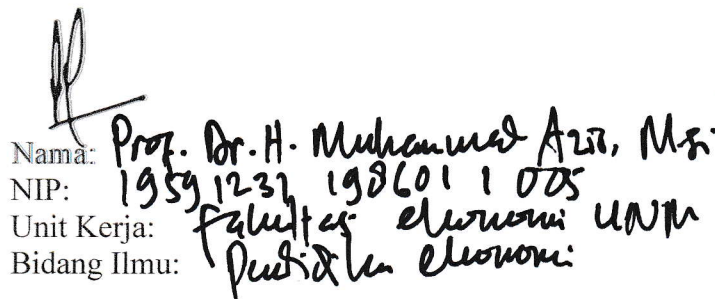 Nama: Prof. Dr. H. Muhammad Azis, M.Si.
NIP: 19591231 198601 1 005
Unit Kerja: Fakultas ekonomi UNM
Bidang Ilmu: Pendidikan ekonomi